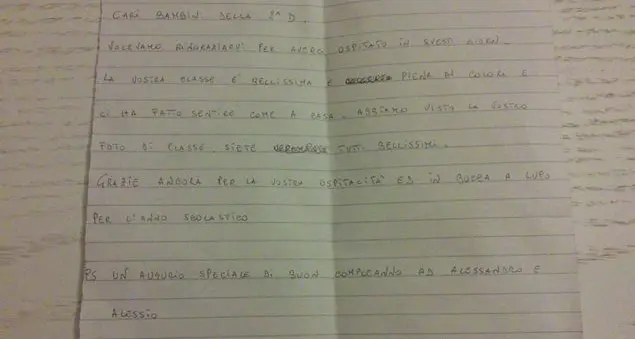 CARI BAMBINI DELLA 2ª D.
VOLEVAMO RINGRAZIARVI PER AVERCI OSPITATO IN QUESTI GIORNI.
LA VOSTRA CLASSE E' BELLISSIMA E PIENA DI COLORI E
CI HA FATTO SENTIRE COME A CASA. ABBIAMO VISTO LA VOSTRA
FOTO DI CLASSE SIETE TUTTI BELLISSIMI.
GRAZIE ANCORA PER LA VOSTRA OSPITALITÀ ED IN BOCCA A LUPO
PER L'ANNO SCOLASTICO
PS UN AUGURIO SPECIALE DI BUON COMPLEANNO AD ALESSANDRO E
ALESSIO